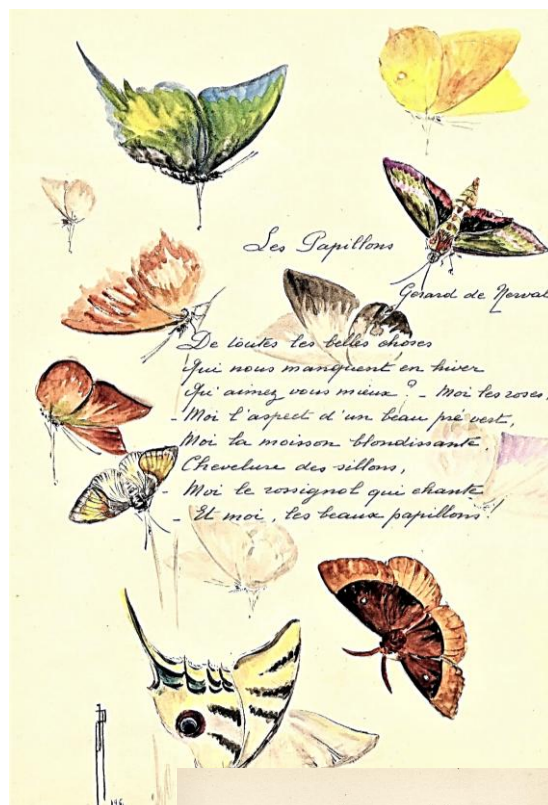 Les Papillons
Gérard de Nerval
De toutes les belles choses
Qui nous manquent en hiver
Qu'aimez vous mieux ? - Moi les roses,
- Moi l'aspect d'un beau pré vert,
- Moi la moisson blondissante,
Chevelure des sillons,
- Moi le rossignol qui chante
- Et moi, les beaux papillons !